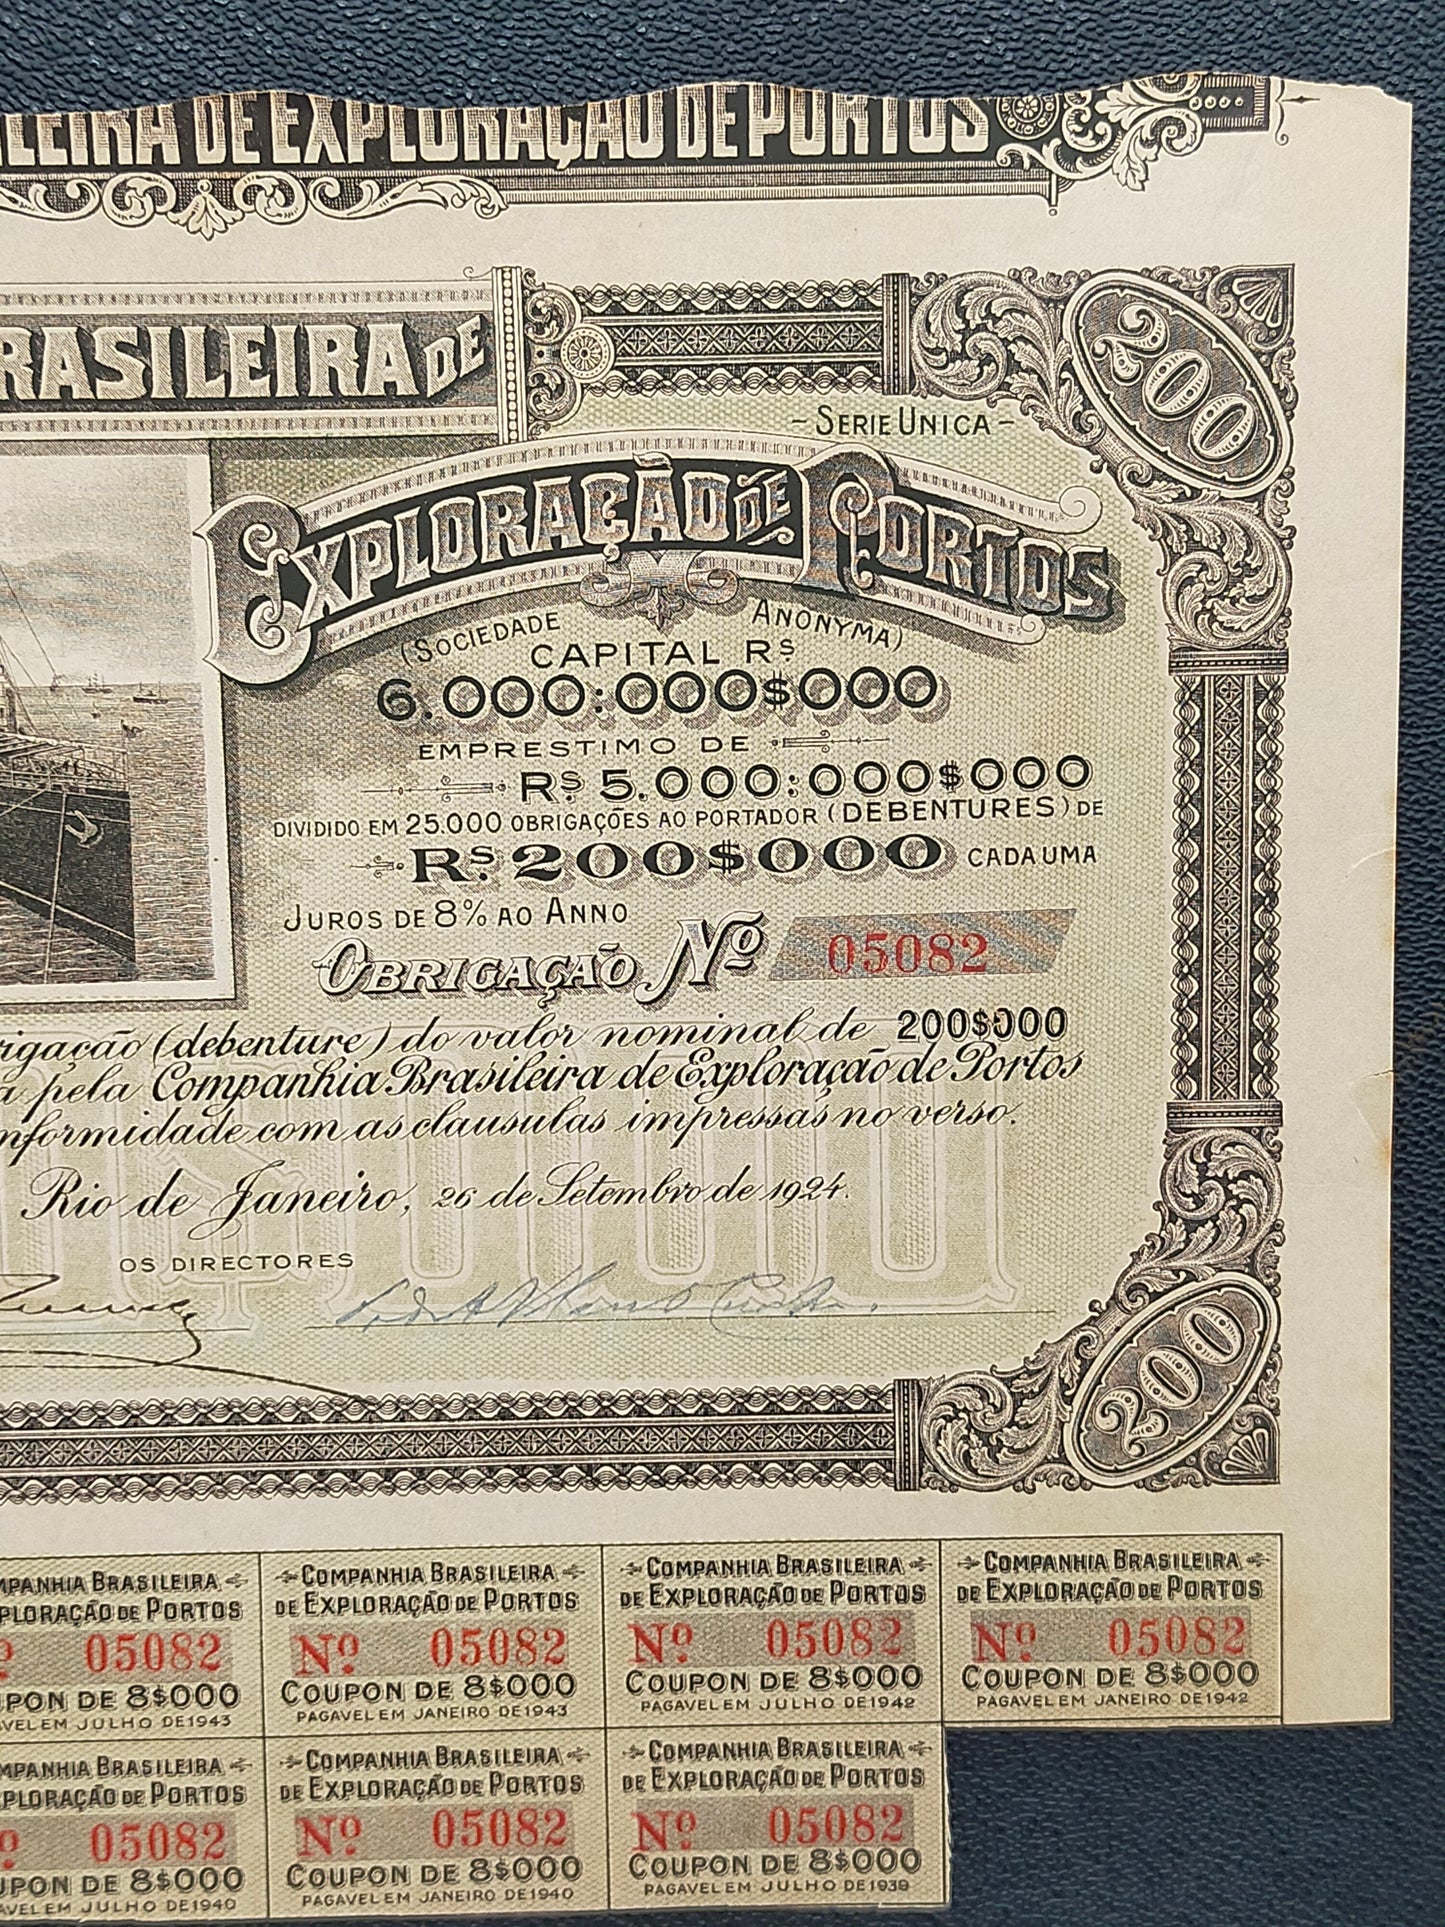 DE EXPLORAÇÃO DE PORTOS
BRASILEIRA DE
- SERIE UNICA -
EXPLORAÇÃO DE PORTOS
(SOCIEDADE ANONYMA)
CAPITAL RS
6.000:000$000
EMPRESTIMO DE
RS. 5.000:000$000
DIVIDIDO EM 25.000 OBRIGAÇÕES AO PORTADOR (DEBENTURES) DE
RS. 200$000 CADA UMA
JUROS DE 8% AO ANNO
OBRIGAÇÃO Nº 05082
(debenture) do valor nominal de 200$000
pela Companhia Brasileira de Exploração de Portos
com as clausulas impressas no verso.
Rio de Janeiro, 26 de Setembro de 1924.
OS DIRECTORES
200
200
BRASILEIRA
DE PORTOS
05082
DE 8$000
JULHO DE 1943
COMPANHIA BRASILEIRA
DE EXPLORAÇÃO DE PORTOS
Nº 05082
COUPON DE 8$000
PAGAVEL EM JANEIRO DE 1943
COMPANHIA BRASILEIRA
DE EXPLORAÇÃO DE PORTOS
Nº 05082
COUPON DE 8$000
PAGAVEL EM JULHO DE 1942
COMPANHIA BRASILEIRA
DE EXPLORAÇÃO DE PORTOS
Nº 05082
COUPON DE 8$000
PAGAVEL EM JANEIRO DE 1942
BRASILEIRA
DE PORTOS
05082
DE 8$000
JULHO DE 1940
COMPANHIA BRASILEIRA
DE EXPLORAÇÃO DE PORTOS
Nº 05082
COUPON DE 8$000
PAGAVEL EM JANEIRO DE 1940
COMPANHIA BRASILEIRA
DE EXPLORAÇÃO DE PORTOS
Nº 05082
COUPON DE 8$000
PAGAVEL EM JULHO DE 1939